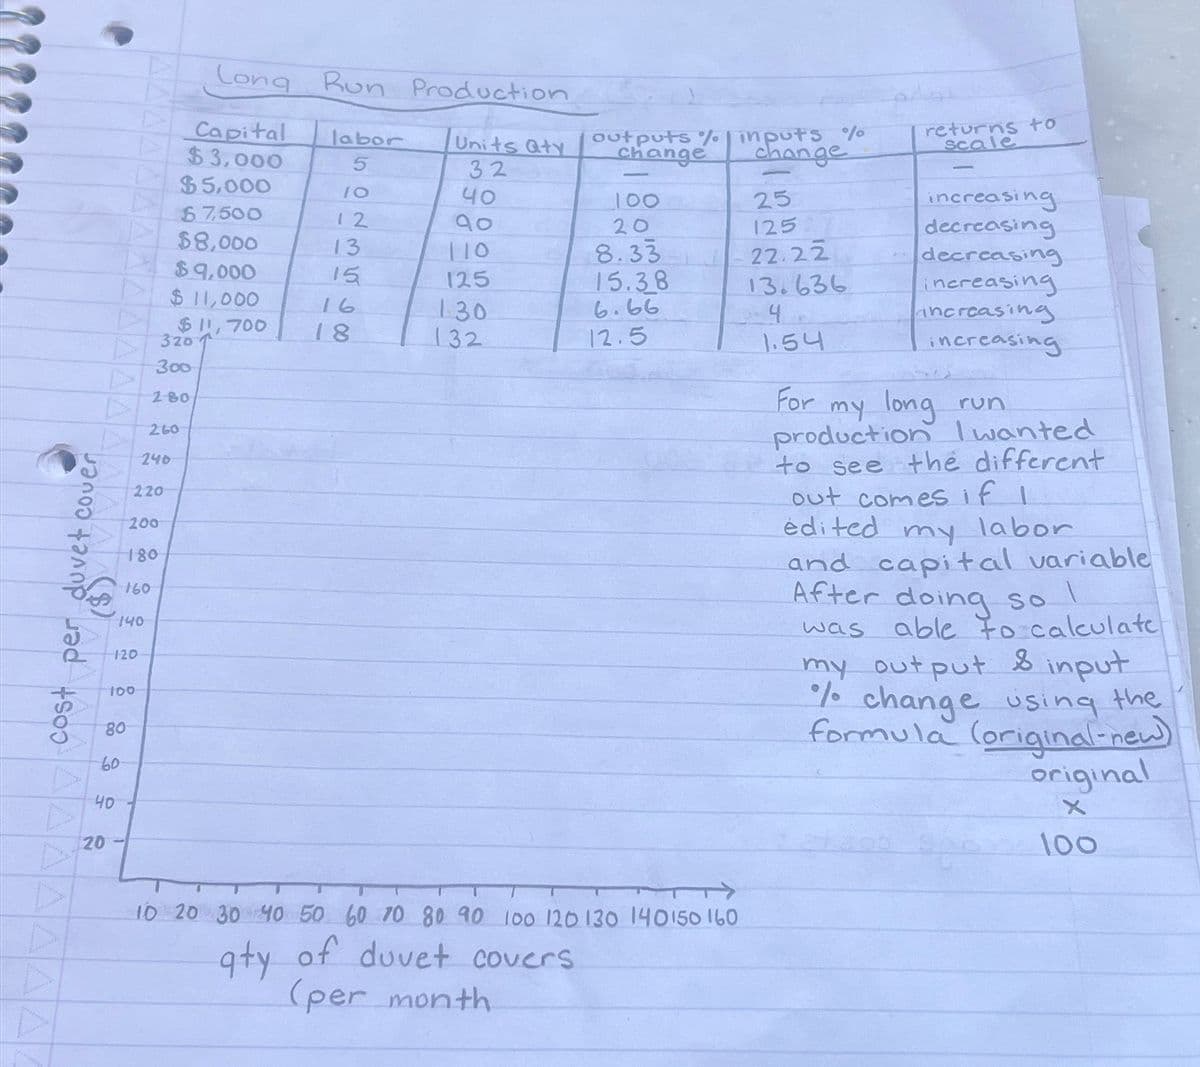 Long Run Production
Capital labor Units Qty outputs % change inputs % change returns to scale
$3,000 5 32 — — —
$5,000 10 40 100 25 increasing
$7,500 12 90 20 125 decreasing
$8,000 13 110 8.33 22.22 decreasing
$9,000 15 125 15.38 13.636 increasing
$11,000 16 130 6.66 4 increasing
$11,700 18 132 12.5 1.54 increasing
320
300
280
260
240
220
200
180
160
140
120
100
80
60
40
20
cost per duvet cover
($)
10 20 30 40 50 60 70 80 90 100 120 130 140 150 160
qty of duvet covers
(per month
For my long run
production I wanted
to see the different
out comes if I
edited my labor
and capital variable
After doing so I
was able to calculate
my output & input
% change using the
formula (original-new)
original
x
100